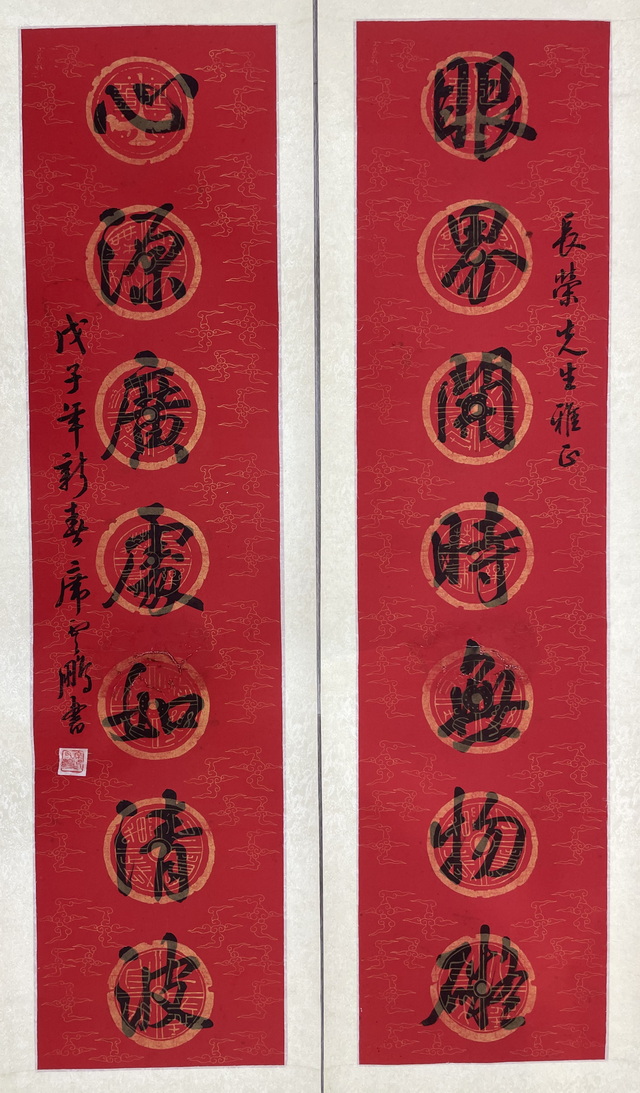 長榮先生雅正
眼界開時無物礙
心源廣處如清波
戊子年新春席云鵬書